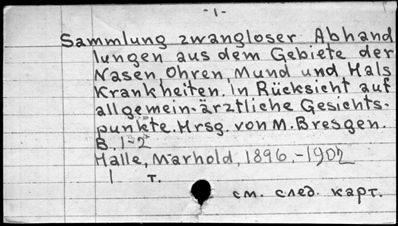 -1-
Sammlung zwangloser Abhand
lungen aus dem Gebiete der
Nasen, Ohren, Mund und Hals
Krankheiten. In Rücksicht auf
allgemein-ärztliche Gesichts-
punkte. Hrsg. von M. Bresgen.
B. 1-2
Halle, Marhold, 1896.-1902
1 т.
см. след. карт.